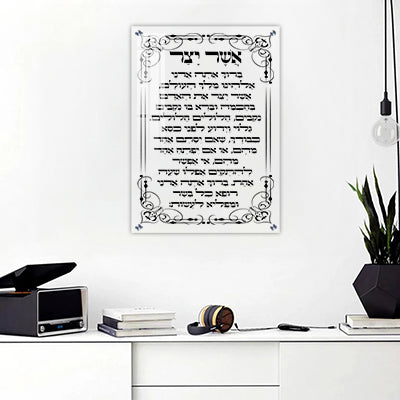 אֲשֶׁר יָצַר
ברוך אתה אדני
אלהינו מלך העולם,
אשר יצר את האדם
בחכמה וברא בו נקבים
נקבים, חלולים חלולים.
גלוי וידוע לפני כסא
כבודך, שאם יסתם אחד
מהם, או אם יפתח אחד
מהם, אי אפשר
להתקיים אפילו שעה
אחת. ברוך אתה אדני
רופא כל בשר
ומפליא לעשות: